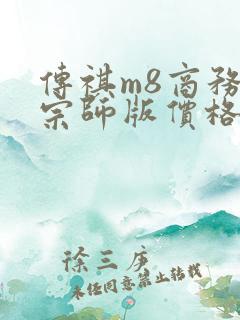 傳祺m8商務
宗師版價格
徐三庚
未經同意禁止轉載